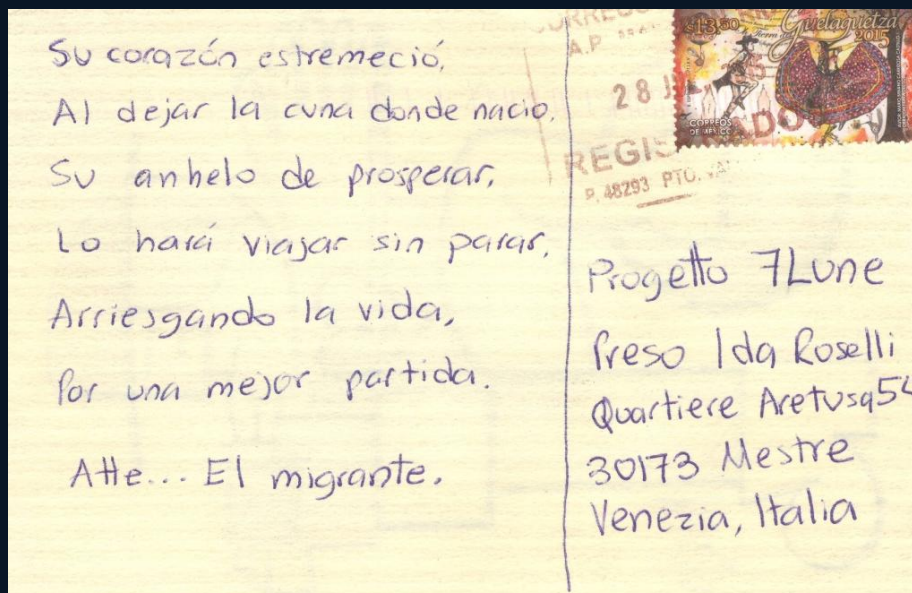 Su corazón estremeció,
Al dejar la cuna donde nacio,
Su anhelo de prosperar,
Lo hará viajar sin parar,
Arriesgando la vida,
Por una mejor partida.
Atte... El migrante.
A.P.
28
REGIS ADO
P. 48293 PTO.
$13.50
Guelaguetza
2015
CORREOS
DE MÉXICO
Progetto 7Lune
Preso Ida Roselli
Quartiere Aretusa 54
30173 Mestre
Venezia, Italia